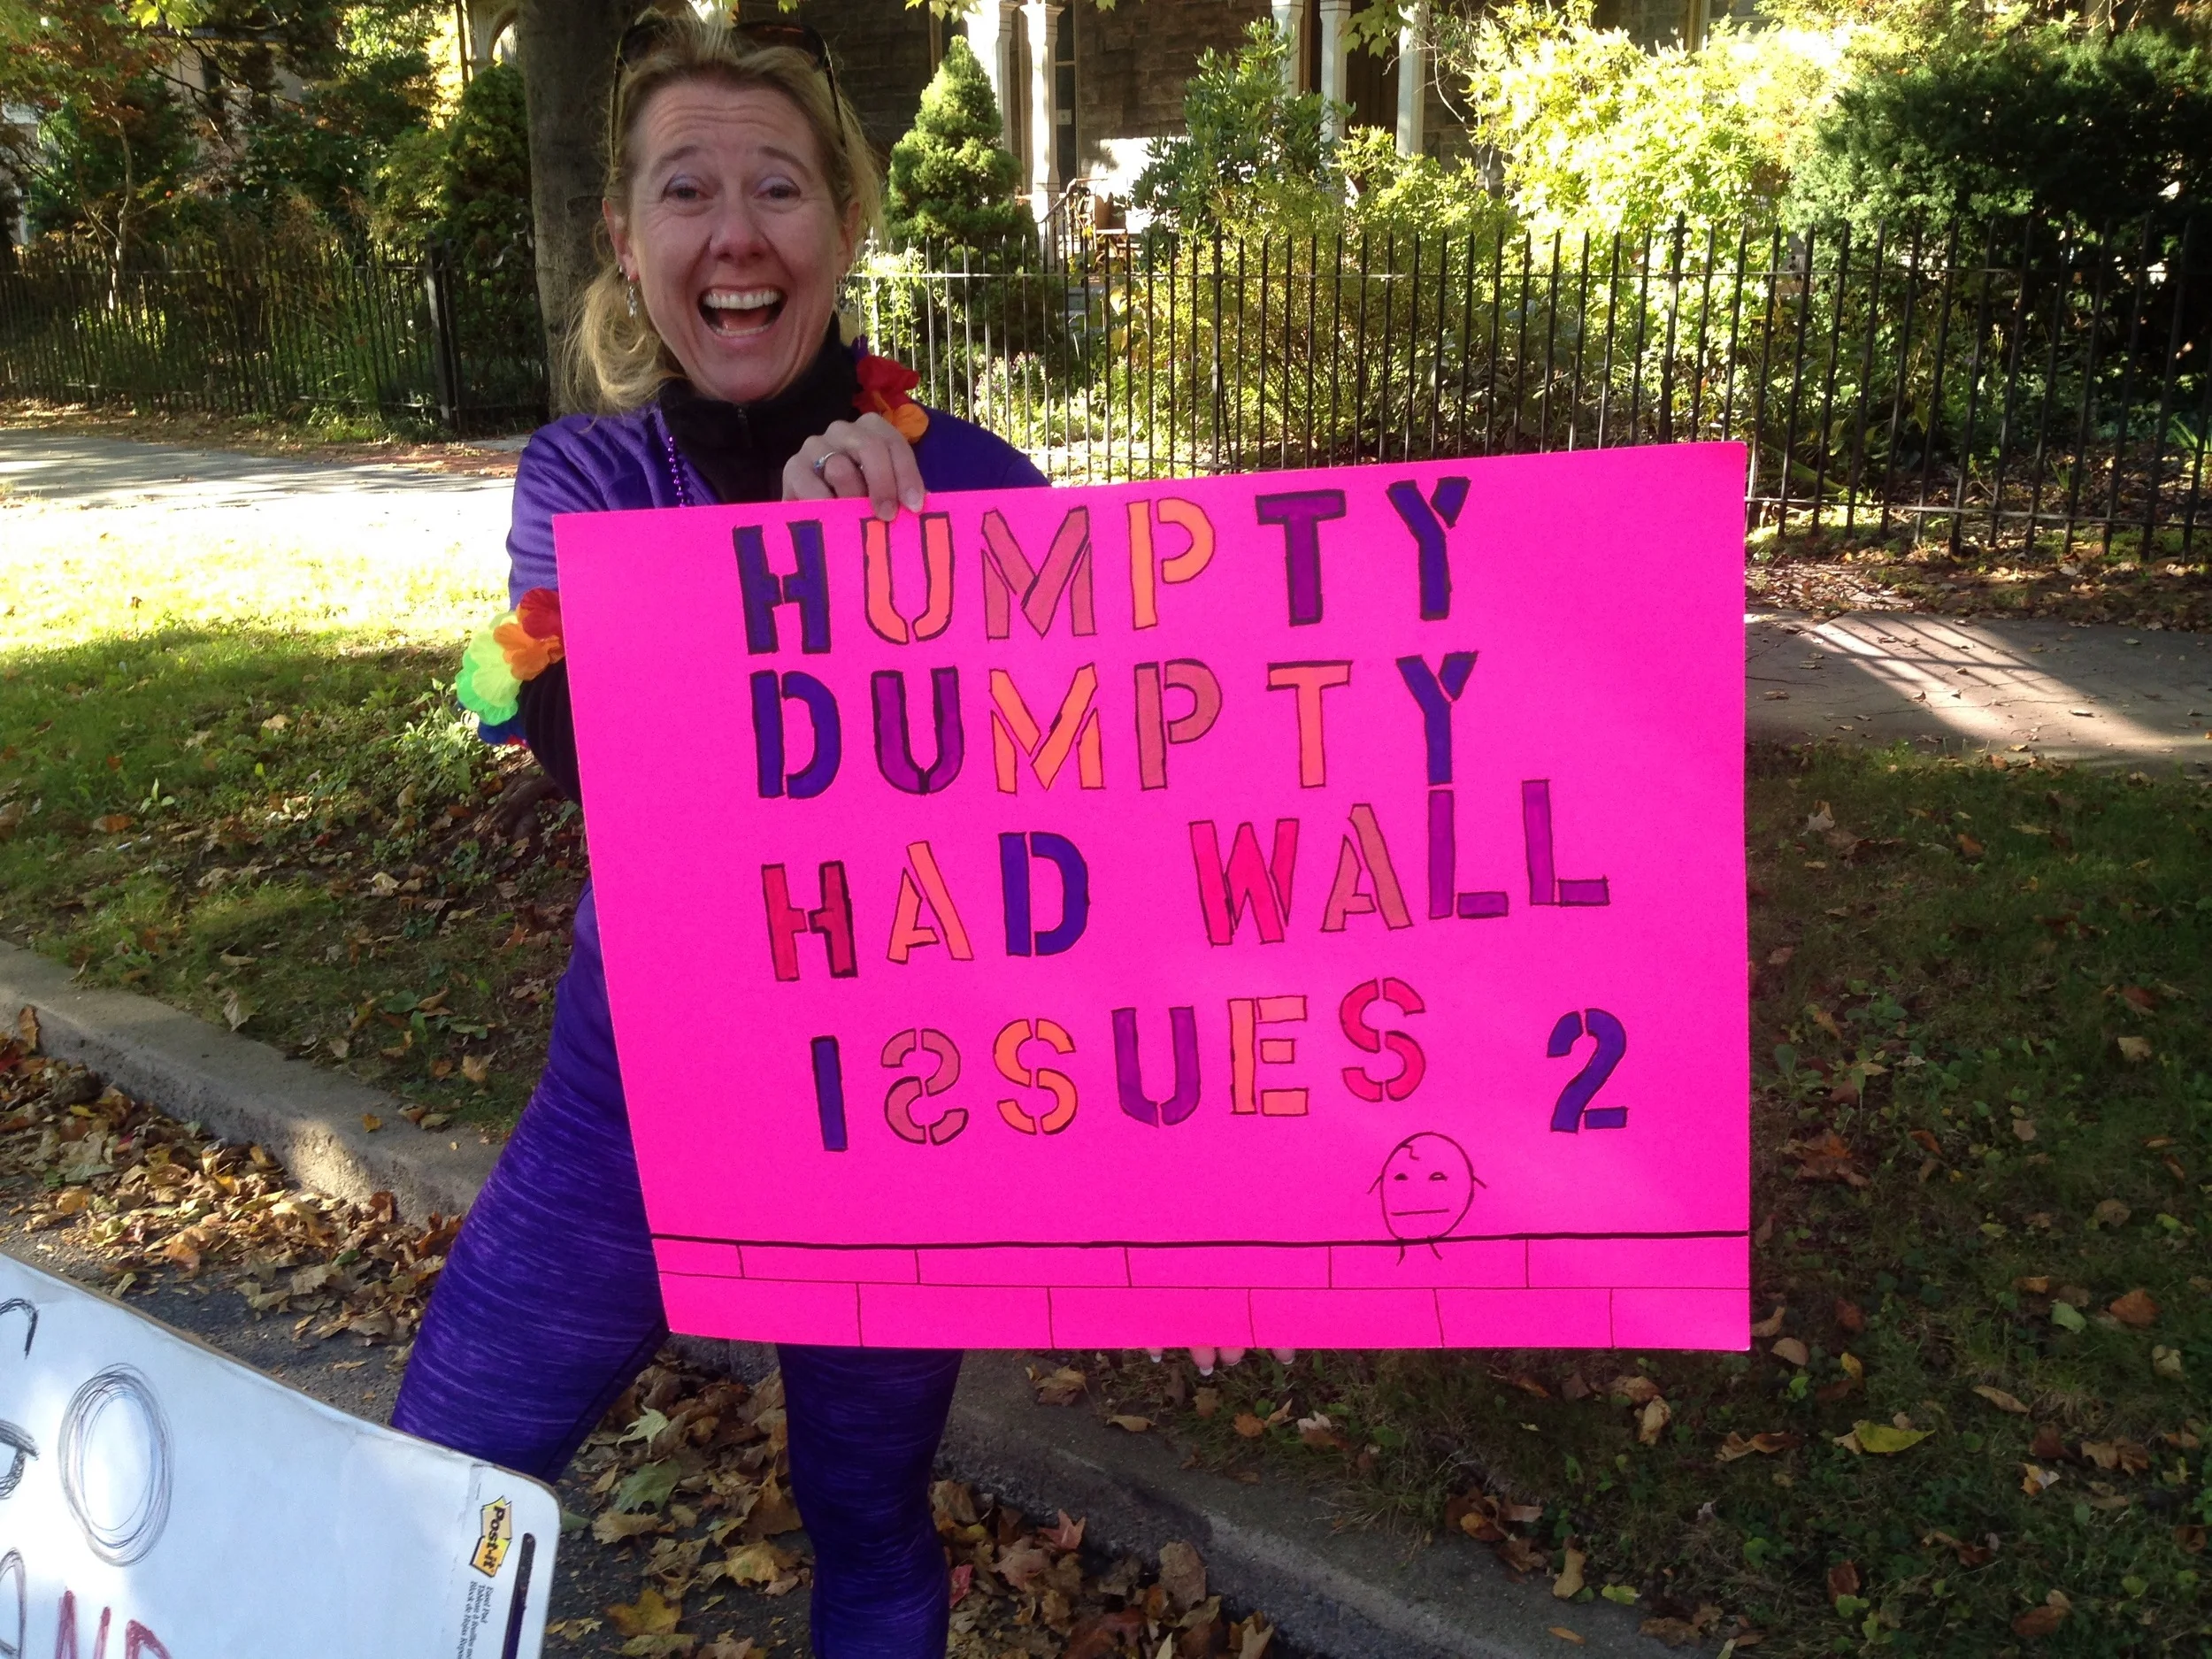 HUMPTY
DUMPTY
HAD WALL
ISSUES 2
Post-it
Easel Pad